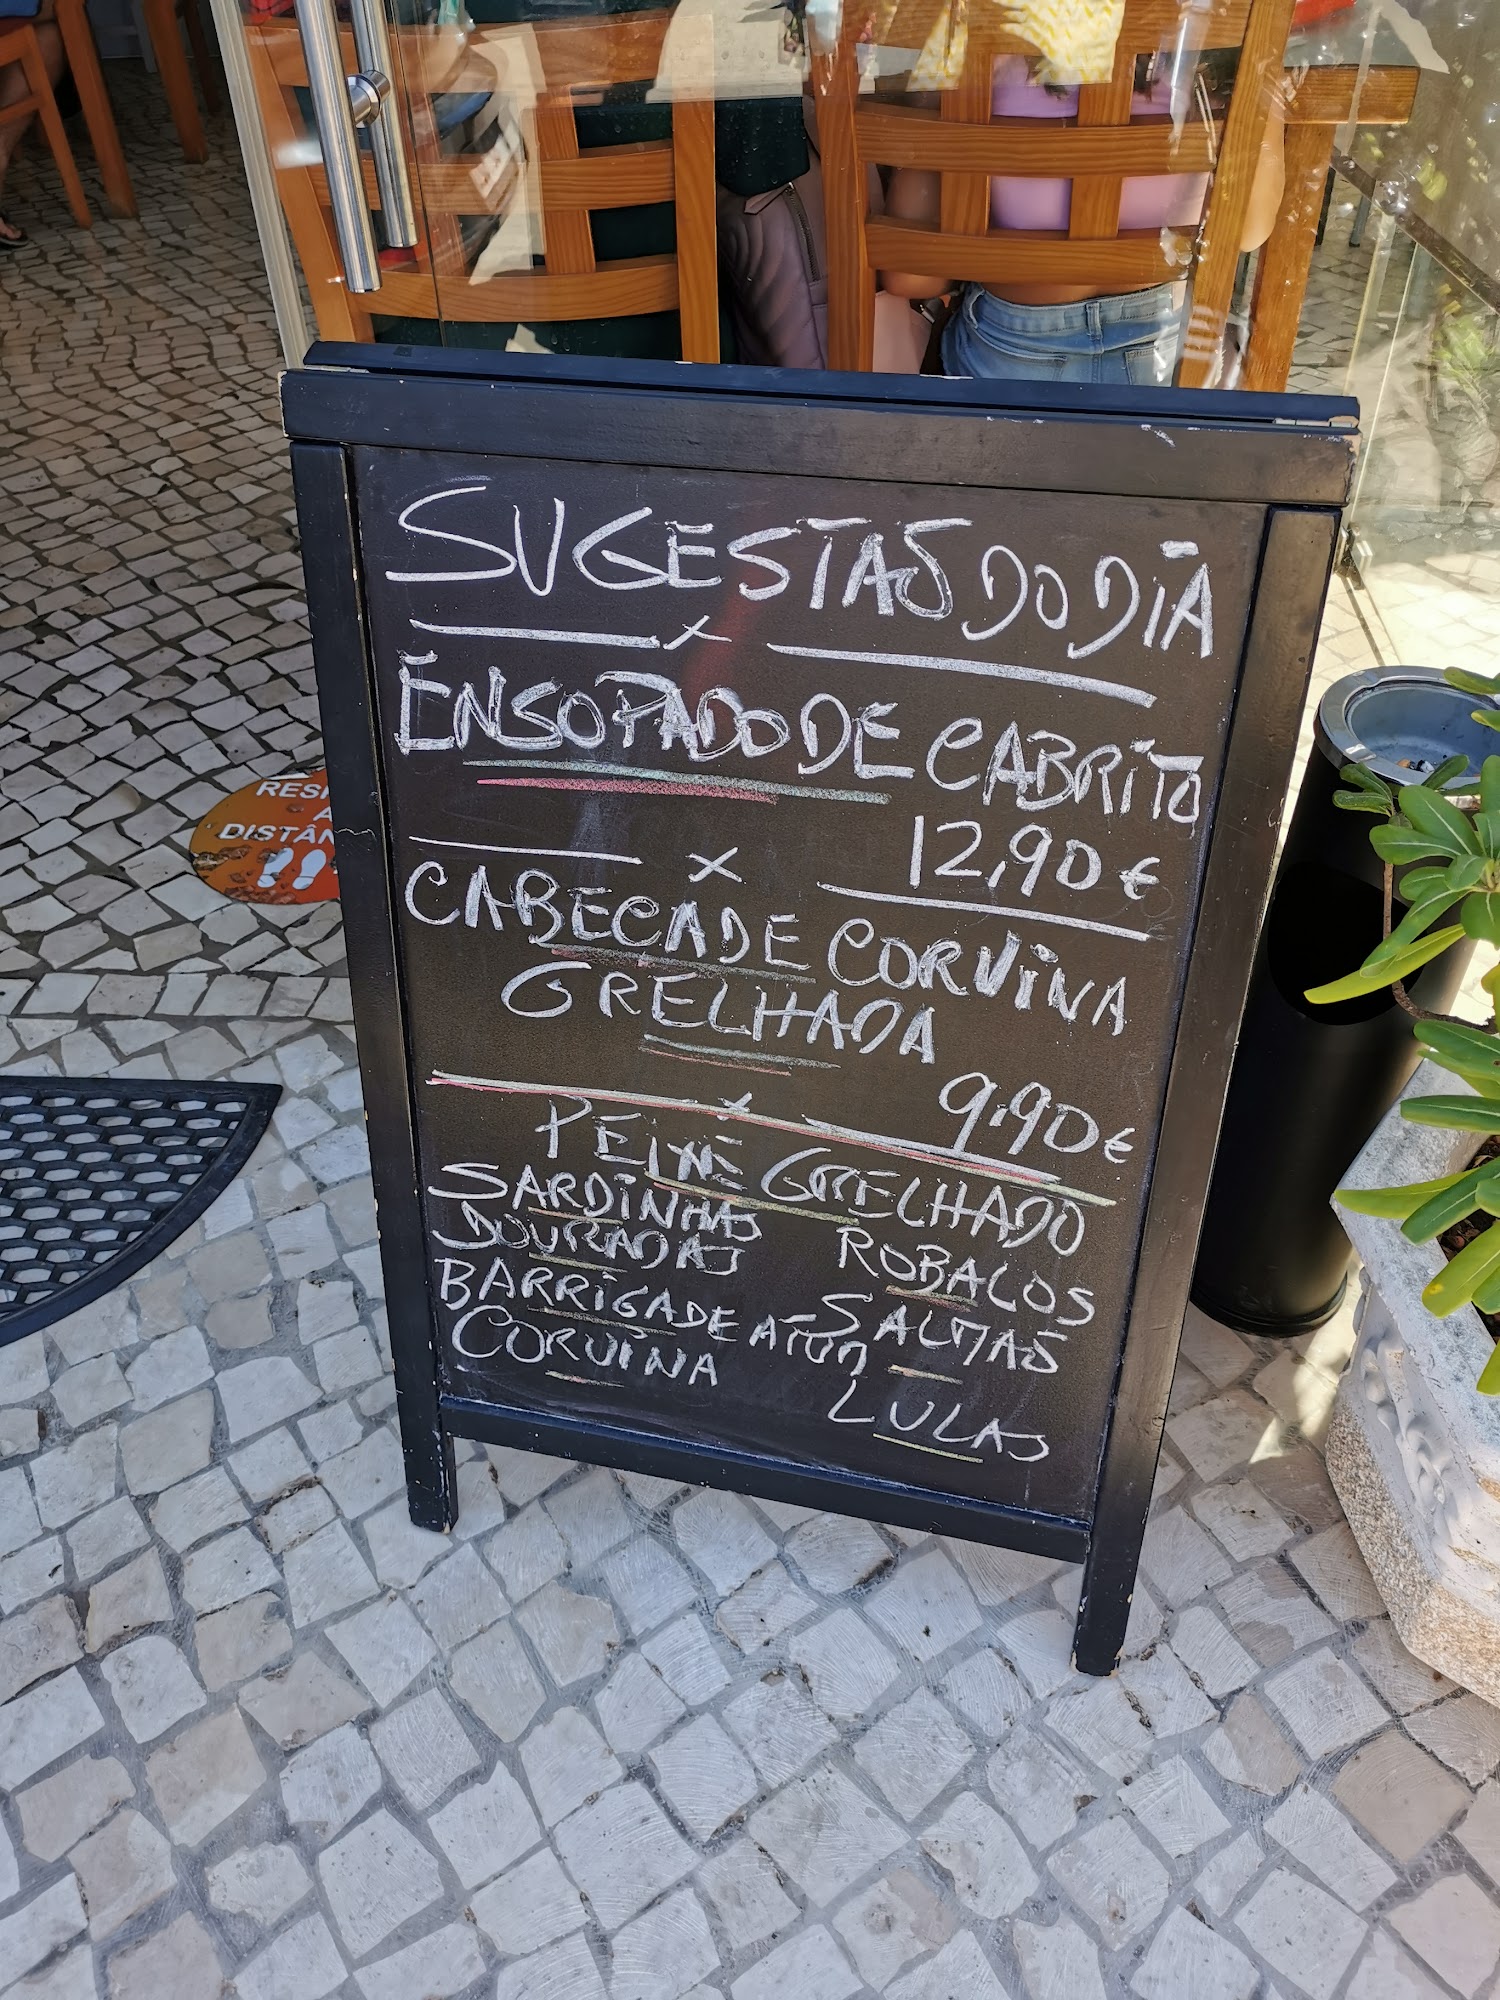 SUGESTÃO DO DIA
ENSOPADO DE CABRITO
12,90€
CABEÇA DE CORVINA
GRELHADA
9,90€
PEIXE GRELHADO
SARDINHAS
DOURADAS
ROBALOS
BARRIGA DE ATUM
SALMÃO
CORVINA
LULAS
RESP
A
DISTÂN